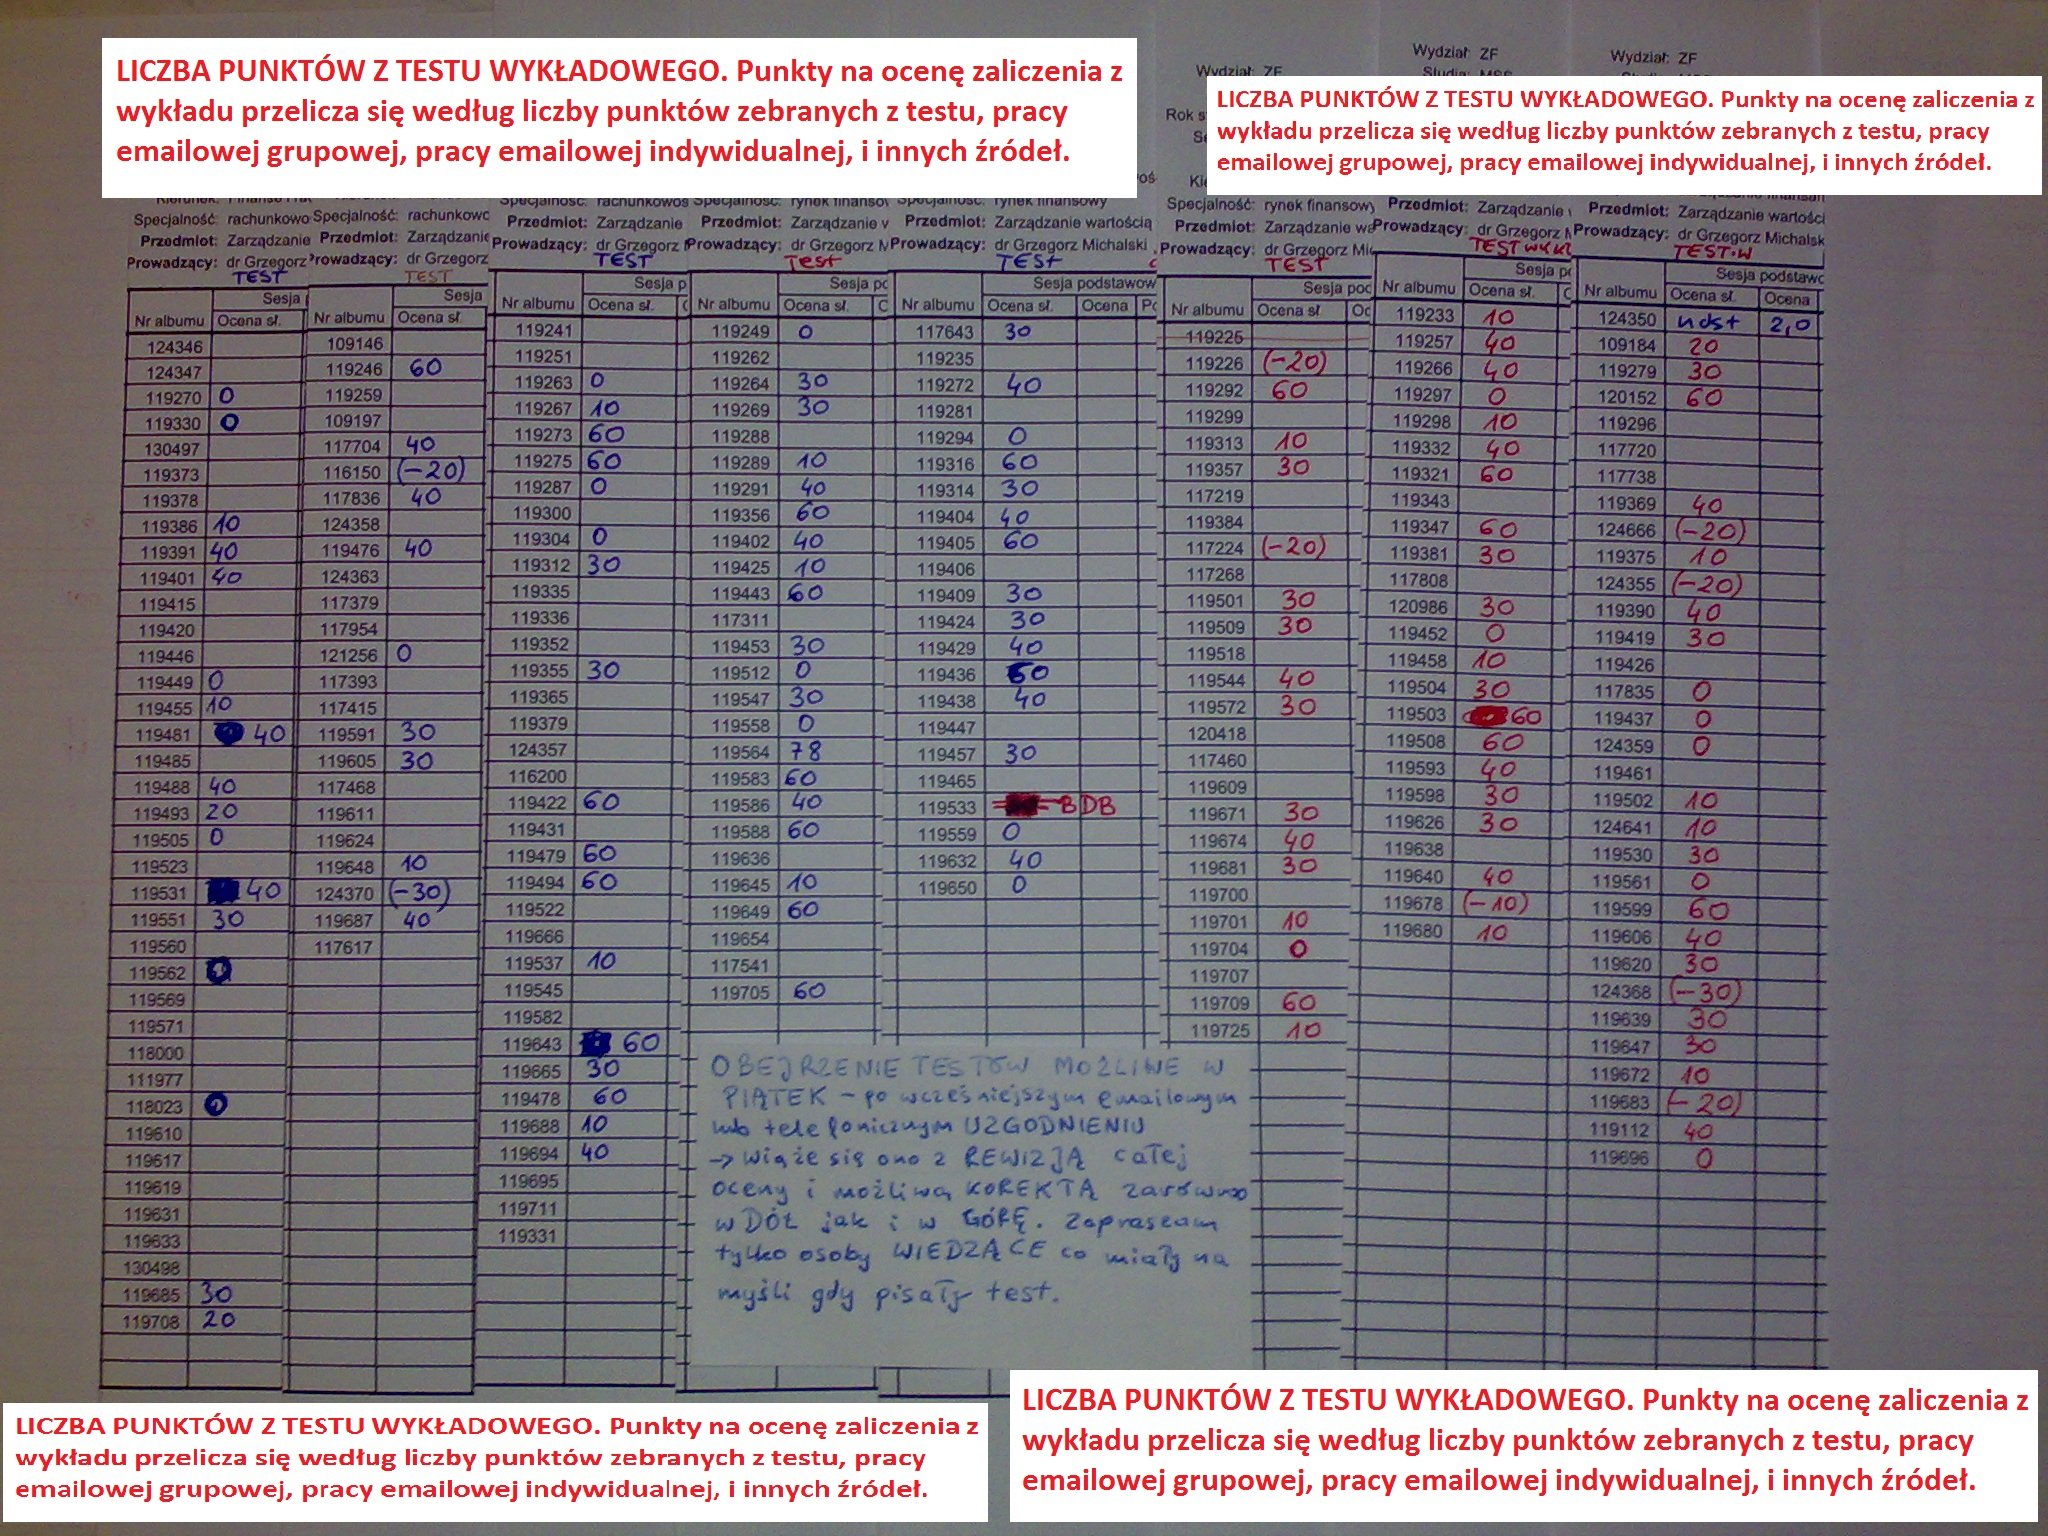 LICZBA PUNKTÓW Z TESTU WYKŁADOWEGO. Punkty na ocenę zaliczenia z
wykładu przelicza się według liczby punktów zebranych z testu, pracy
emailowej grupowej, pracy emailowej indywidualnej, i innych źródeł.
Wydział: ZF
Wydział: ZF
Wydział: ZF
LICZBA PUNKTÓW Z TESTU WYKŁADOWEGO. Punkty na ocenę zaliczenia z
wykładu przelicza się według liczby punktów zebranych z testu, pracy
emailowej grupowej, pracy emailowej indywidualnej, i innych źródeł.
Specjalność: rachunkowo
Przedmiot: Zarządzanie
Prowadzący: dr Grzegorz
TEST
Sesja
Nr albumu Ocena sł.
124346
124347
119270 0
119330 0
130497
119373
119378
119386 10
119391 40
119401 40
119415
119420
119446
119449 0
119455 10
119481 40
119485
119488 40
119493 20
119505 0
119523
119531 40
119551 30
119560
119562 0
119569
119571
118000
111977
118023 0
119610
119617
119619
119631
119633
130498
119685 30
119708 20
Specjalność: rachunkowc
Przedmiot: Zarządzanie
Prowadzący: dr Grzegorz
TEST
Sesja
Nr albumu Ocena sł
109146
119246 60
119259
109197
117704 40
116150 (-20)
117836 40
124358
119476 40
124363
117379
117954
121256 0
117393
117415
119591 30
119605 30
117468
119611
119624
119648 10
124370 (-30)
119687 40
117617
Specjalność: rachunkowos
Przedmiot: Zarządzanie
Prowadzący: dr Grzegorz
TEST
Sesja p
Nr albumu Ocena sł.
119241
119251
119263 0
119267 10
119273 60
119275 60
119287 0
119300
119304 0
119312 30
119335
119336
119352
119355 30
119365
119379
124357
116200
119422 60
119431
119479 60
119494 60
119522
119666
119537 10
119545
119582
119643 60
119665 30
119478 60
119688 10
119694 40
119695
119711
119331
Specjalność: rynek finansov
Przedmiot: Zarządzanie v
Prowadzący: dr Grzegorz M
Test
Sesja pc
Nr albumu Ocena sł.
119249 0
119262
119264 30
119269 30
119288
119289 10
119291 40
119356 60
119402 40
119425 10
119443 60
117311
119453 30
119512 0
119547 30
119558 0
119564 78
119583 60
119586 40
119588 60
119636
119645 10
119649 60
119654
117541
119705 60
Specjalność: rynek finansowy
Przedmiot: Zarządzanie wartością
Prowadzący: dr Grzegorz Michalski
TEST
Sesja podstawow
Nr albumu Ocena sł. Ocena
117643 30
119235
119272 40
119281
119294 0
119316 60
119314 30
119404 40
119405 60
119406
119409 30
119424 30
119429 40
119436 60
119438 40
119447
119457 30
119465
119533 BDB
119559 0
119632 40
119650 0
Specjalność: rynek finansowy
Przedmiot: Zarządzanie wa
Prowadzący: dr Grzegorz Mic
TEST
Sesja poc
Nr albumu Ocena sł
119225
119226 (-20)
119292 60
119299
119313 10
119357 30
117219
119384
117224 (-20)
117268
119501 30
119509 30
119518
119544 40
119572 30
120418
117460
119609
119671 30
119674 40
119681 30
119700
119701 10
119704 0
119707
119709 60
119725 10
Przedmiot: Zarządzanie
Prowadzący: dr Grzegorz
TEST WYKŁ
Sesja
Nr albumu Ocena sł.
119233 10
119257 40
119266 40
119297 0
119298 10
119332 40
119321 60
119343
119347 60
119381 30
117808
120986 30
119452 0
119458 10
119504 30
119503 60
119508 60
119593 40
119598 30
119626 30
119638
119640 40
119678 (-10)
119680 10
Przedmiot: Zarządzanie wartości
Prowadzący: dr Grzegorz Michalsk
TEST.W
Sesja podstawc
Nr albumu Ocena sł. Ocena
124350 ndst 2,0
109184 20
119279 30
120152 60
119296
117720
117738
119369 40
124666 (-20)
119375 10
124355 (-20)
119390 40
119419 30
119426
117835 0
119437 0
124359 0
119461
119502 10
124641 10
119530 30
119561 0
119599 60
119606 40
119620 30
124368 (-30)
119639 30
119647 30
119672 10
119683 (-20)
119112 40
119696 0
OBEJRZENIE TESTÓW MOŻLIWE W
PIĄTEK - po wcześniejszym emailowym
lub telefonicznym UZGODNIENIU
-> wiąże się ono z REWIZJĄ całej
oceny i możliwą KOREKTĄ zarówno
w DÓŁ jak i w GÓRĘ. Zapraszam
tylko osoby WIEDZĄCE co miały na
myśli gdy pisały test.
LICZBA PUNKTÓW Z TESTU WYKŁADOWEGO. Punkty na ocenę zaliczenia z
wykładu przelicza się według liczby punktów zebranych z testu, pracy
emailowej grupowej, pracy emailowej indywidualnej, i innych źródeł.
LICZBA PUNKTÓW Z TESTU WYKŁADOWEGO. Punkty na ocenę zaliczenia z
wykładu przelicza się według liczby punktów zebranych z testu, pracy
emailowej grupowej, pracy emailowej indywidualnej, i innych źródeł.